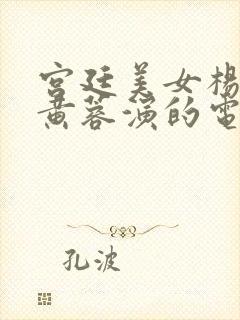 宫廷美女楊
黄蓉演的電
孔波